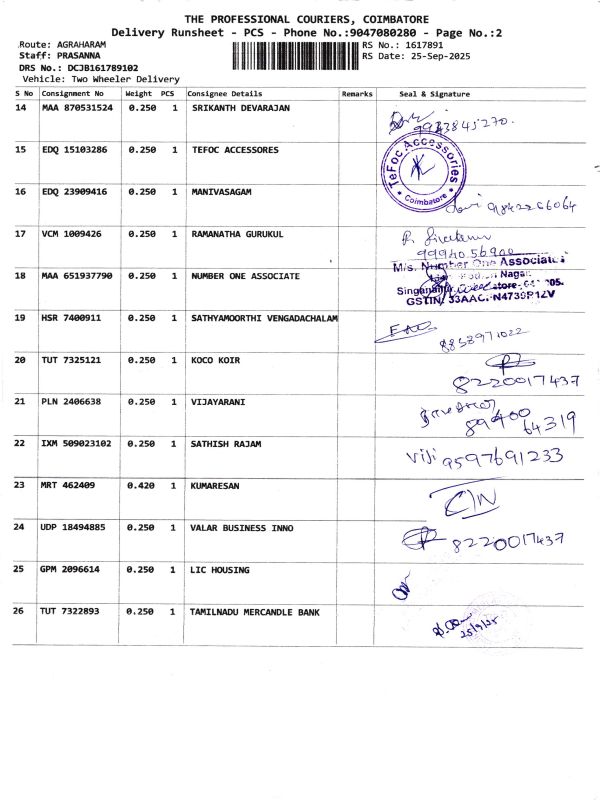 THE PROFESSIONAL COURIERS, COIMBATORE
Delivery Runsheet - PCS - Phone No.:9047080280 - Page No.:2
Route: AGRAHARAM RS No.: 1617891
Staff: PRASANNA RS Date: 25-Sep-2025
DRS No.: DCJB161789102
Vehicle: Two Wheeler Delivery
S No Consignment No Weight PCS Consignee Details Remarks Seal & Signature
14 MAA 870531524 0.250 1 SRIKANTH DEVARAJAN
9943845270.
15 EDQ 15103286 0.250 1 TEFOC ACCESSORES
TeFoc Accessories
Coimbatore
16 EDQ 23909416 0.250 1 MANIVASAGAM
9842266064
17 VCM 1009426 0.250 1 RAMANATHA GURUKUL
9994056900
18 MAA 651937790 0.250 1 NUMBER ONE ASSOCIATE
M/s. Number One Associates
Nagar
19 HSR 7400911 0.250 1 SATHYAMOORTHI VENGADACHALAM
8858971022
20 TUT 7325121 0.250 1 KOCO KOIR
8220017437
21 PLN 2406638 0.250 1 VIJAYARANI
89400
64319
22 IXM 509023102 0.250 1 SATHISH RAJAM
Viji 9597691233
23 MRT 462409 0.420 1 KUMARESAN
24 UDP 18494885 0.250 1 VALAR BUSINESS INNO
8220017437
25 GPM 2096614 0.250 1 LIC HOUSING
26 TUT 7322893 0.250 1 TAMILNADU MERCANDLE BANK
25/9/25